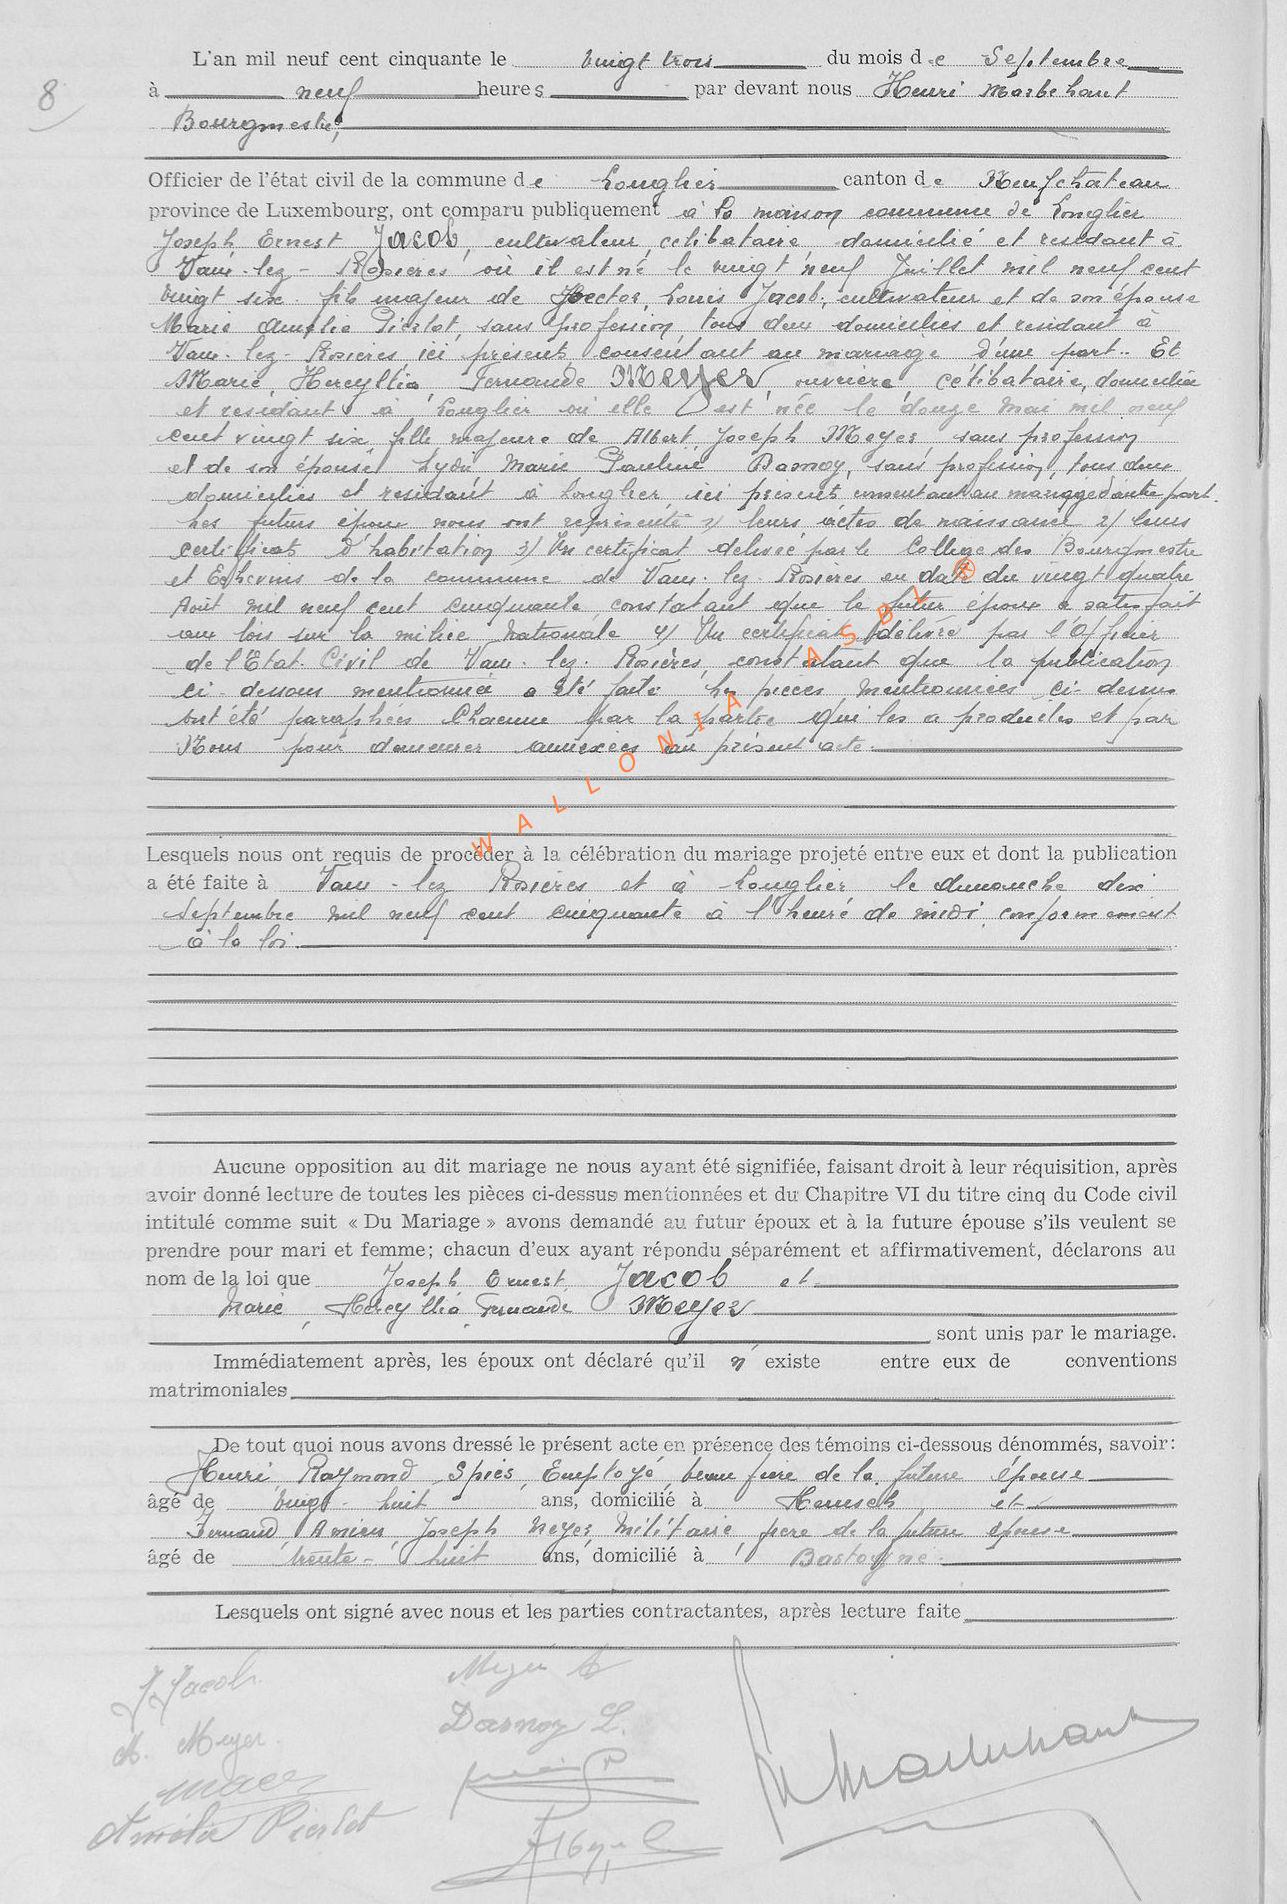 8
L'an mil neuf cent cinquante le vingt trois du mois de Septembre
à neuf heures par devant nous Henri Marbehant
Bourgmestre,
Officier de l'état civil de la commune de Longlier canton de Neufchateau
province de Luxembourg, ont comparu publiquement à la maison commune de Longlier
Joseph Ernest Jacob, cultivateur, célibataire domicilié et résidant à
Vaux-lez-Rosieres, où il est né le vingt neuf Juillet mil neuf cent
vingt six fils majeur de Hector, Louis Jacob, cultivateur et de son épouse
Marie Amélie Pierlot, sans profession, tous deux domiciliés et résidant à
Vaux-lez-Rosieres ici présents consentant au mariage d'une part. Et
Marie, Hercyllia Fernande Meyer ouvrière célibataire, domiciliée
et résidant à Longlier où elle est née le douze Mai mil neuf
cent vingt six fille majeure de Albert Joseph Meyer sans profession
et de son épouse Lydie Marie Pauline Dasnoy, sans profession, tous deux
domiciliés et résidant à Longlier ici présents consentant au mariage d'autre part.
Les futurs époux nous ont représenté 1) leurs actes de naissance 2) leurs
certificats d'habitation 3) Un certificat délivré par le Collège des Bourgmestre
et Echevins de la commune de Vaux-lez-Rosières en date du vingt quatre
Août mil neuf cent cinquante constatant que le futur époux a satisfait
aux lois sur la milice Nationale 4) Un certificat délivré par l'Officier
de l'Etat-Civil de Vaux-lez-Rosières, constatant que la publication
ci-dessous mentionnée a été faite. Les pièces mentionnées ci-dessus
ont été paraphées chacune par la partie qui les a produites et par
Nous pour demeurer annexées au présent acte.
WALLONIA ASBL ®
Lesquels nous ont requis de procéder à la célébration du mariage projeté entre eux et dont la publication
a été faite à Vaux-lez Rosières et à Longlier le dimanche dix
Septembre mil neuf cent cinquante à l'heure de midi conformément
à la loi.
Aucune opposition au dit mariage ne nous ayant été signifiée, faisant droit à leur réquisition, après
avoir donné lecture de toutes les pièces ci-dessus mentionnées et du Chapitre VI du titre cinq du Code civil
intitulé comme suit « Du Mariage » avons demandé au futur époux et à la future épouse s'ils veulent se
prendre pour mari et femme; chacun d'eux ayant répondu séparément et affirmativement, déclarons au
nom de la loi que Joseph Ernest Jacob et
Marie, Hercyllia, Fernande Meyer
sont unis par le mariage.
Immédiatement après, les époux ont déclaré qu'il n'existe entre eux de conventions
matrimoniales
De tout quoi nous avons dressé le présent acte en présence des témoins ci-dessous dénommés, savoir:
Henri Raymond Spies, Employé, beau frère de la future épouse
âgé de vingt-huit ans, domicilié à et
Fernand Joseph Meyer Militaire frère de la future épouse
âgé de trente-huit ans, domicilié à Bastogne.
Lesquels ont signé avec nous et les parties contractantes, après lecture faite
J Jacob
Meyer A
M. Meyer
Dasnoy L.
Amélie Pierlot
Marbehant